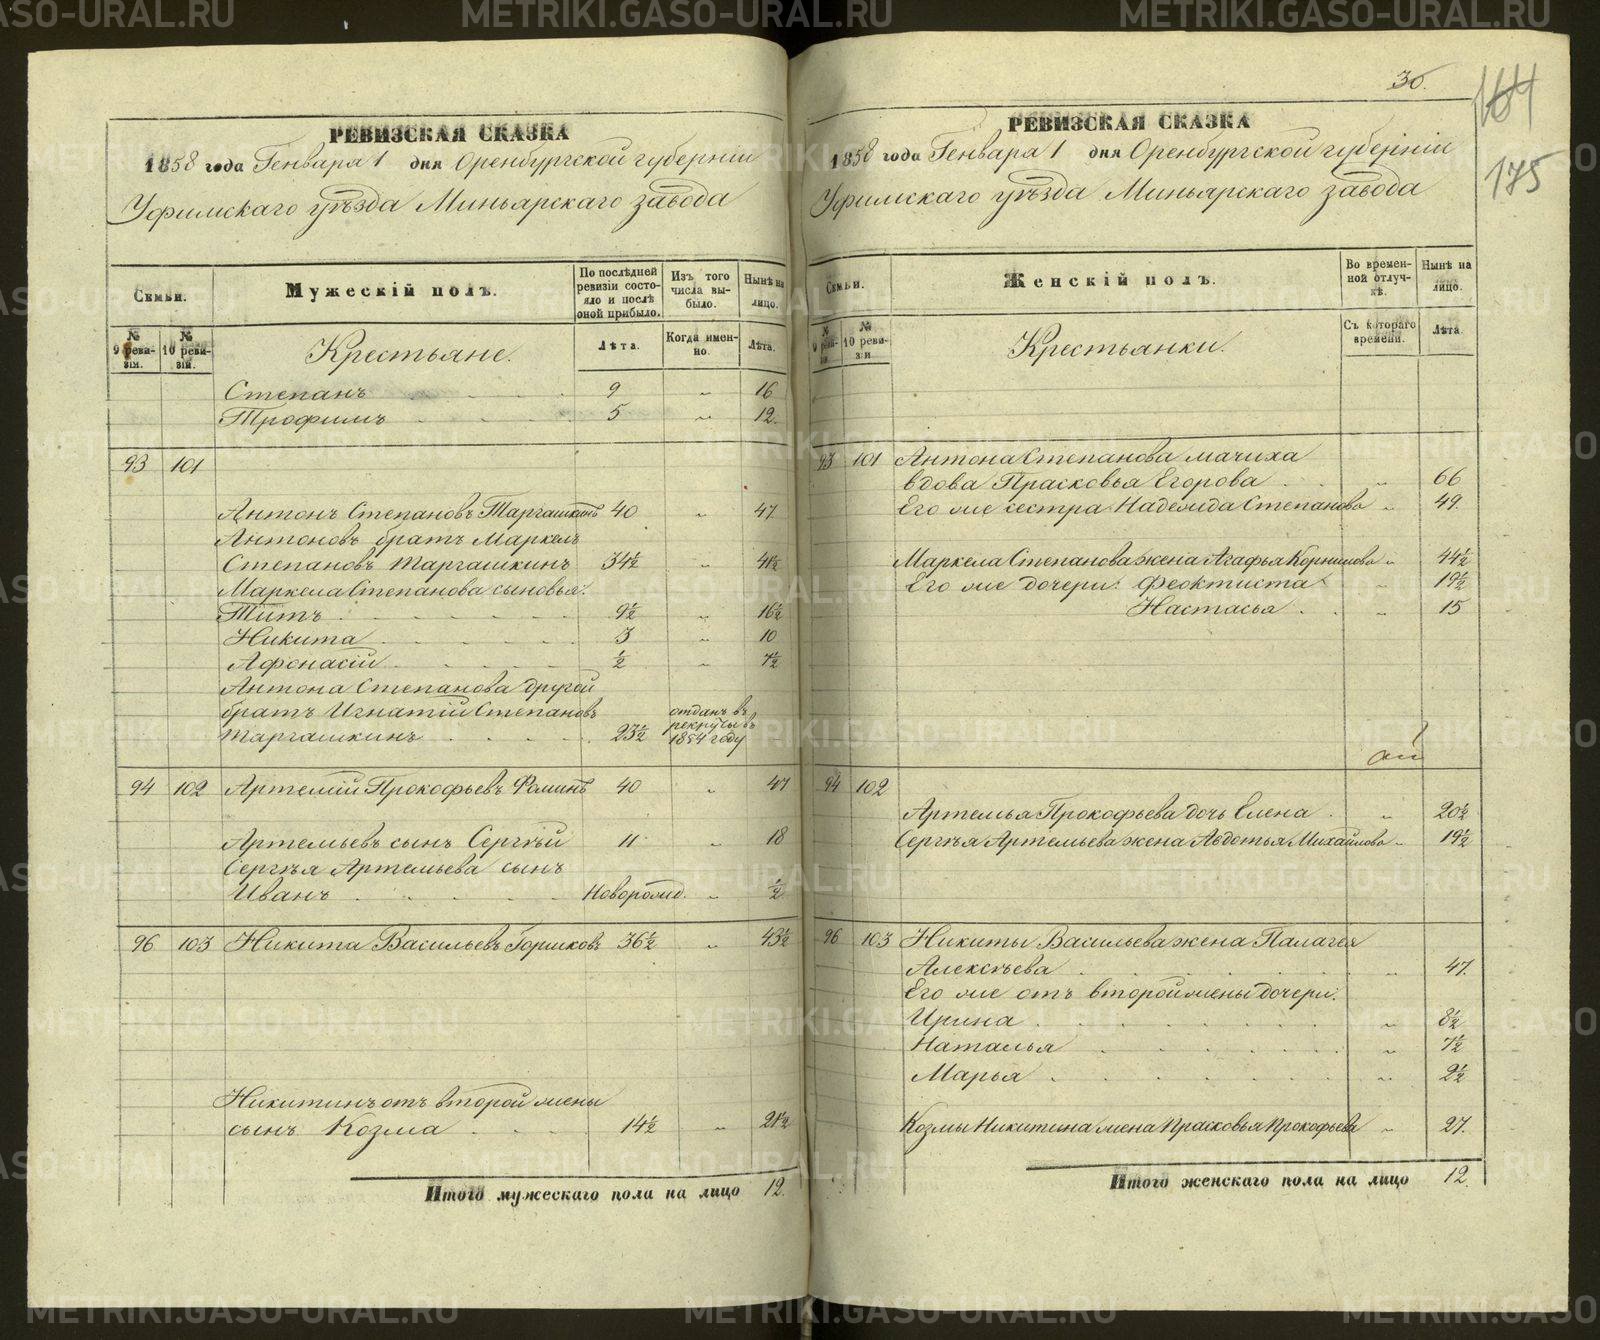 РЕВИЗСКАЯ СКАЗКА
1858 года Генваря 1 дня Оренбургской губерніи
Уфимскаго уѣзда Миньярскаго завода
Семьи.
Мужескій полъ.
По послѣдней ревизіи состояло и послѣ оной прибыло.
Изъ того числа выбыло.
Нынѣ на лицо.
№ 9 ревизіи.
№ 10 ревизіи.
Крестьяне.
Лѣта.
Когда именно.
Лѣта.
Степанъ 9 „ 16
Трофимъ 5 „ 12.
93 101
Антонъ Степановъ Таргашкинъ 40 „ 47
Антоновъ братъ Маркелъ
Степановъ Таргашкинъ 34½ „ 41½
Маркела Степанова сыновья:
Титъ 9½ „ 16½
Никита 3 „ 10
Афонасій ½ „ 7½
Антона Степанова другой
братъ Игнатій Степановъ
Таргашкинъ 23½ отданъ въ рекруты въ 1854 году
94 102 Артемій Прокофьевъ Фоминъ 40 „ 47
Артемьевъ сынъ Сергѣй 11 „ 18
Сергѣя Артемьева сынъ
Иванъ Новорожд. „ ½
96 103 Никита Васильевъ Горшковъ 36½ „ 43½
Никитинъ отъ второй жены
сынъ Козма 14½ „ 21½
Итого мужескаго пола на лицо 12.
30.
164
175
РЕВИЗСКАЯ СКАЗКА
1858 года Генваря 1 дня Оренбургской губерніи
Уфимскаго уѣзда Миньярскаго завода
Семьи.
Женскій полъ.
Во временной отлучкѣ.
Нынѣ на лицо.
№ 9 ревизіи
№ 10 ревизіи
Крестьянки.
Съ котораго времени.
Лѣта.
93 101 Антона Степанова мачиха
вдова Прасковья Егорова „ 66
Его же сестра Надежда Степанова „ 49.
Маркела Степанова жена Агафья Корнилова „ 44½
Его же дочери: Феоктиста „ 19½
Настасья „ 15
94 102
Артемья Прокофьева дочь Елена „ 20½
Сергѣя Артемьева жена Авдотья Михайлова „ 19½
96 103 Никиты Васильева жена Палагея
Алексѣева „ 47.
Его же отъ второй жены дочери:
Ирина „ 8½
Наталья „ 7½
Марья „ 2½
Козмы Никитина жена Прасковья Прокофьева „ 27.
Итого женскаго пола на лицо 12.
METRIKI.GASO-URAL.RU